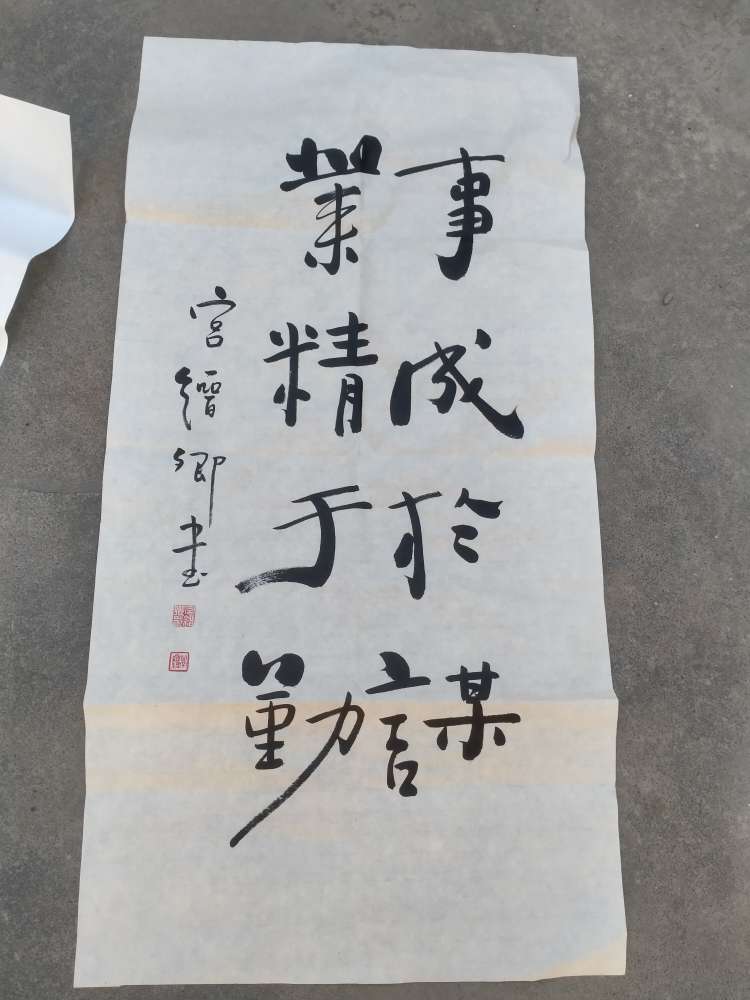 事成於謀
業精于勤
宫縉卿書